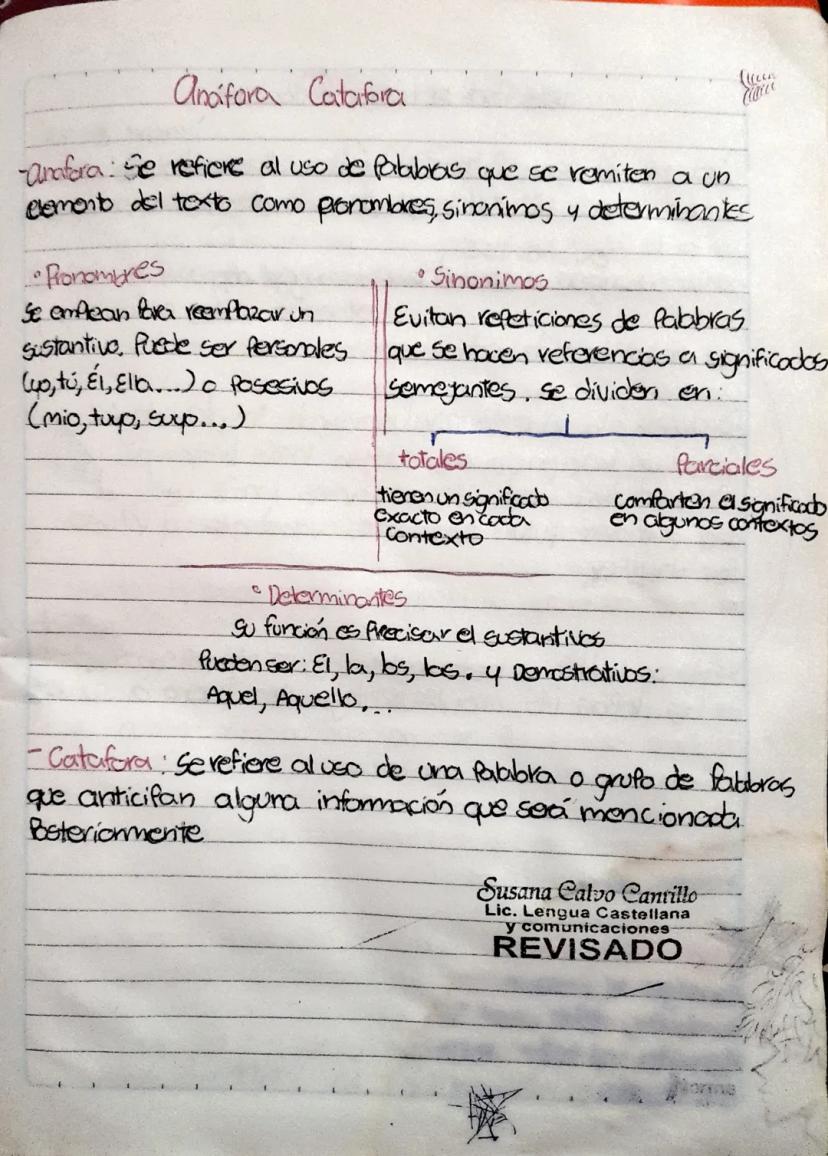 Anáfora Catafora
-anafora: Se refiere al uso de Palabras que se remiten a un
elemento del texto como pronombres, sinonimos y determinantes
• Pronombres
Se emplean Para reemplazar un
sustantivo. Puede ser Personales
(yo, tú, Él, Ella....) o Posesivos
(mio, tuyo, suyo...)
• Sinonimos
Evitan repeticiones de Palabras
que se hacen referencias a significados
semejantes. se dividen en:
totales
tienen un significado
exacto en cada
contexto
Parciales
comparten el significado
en algunos contextos
• Determinantes
Su función es Precisar el sustantivos
Pueden ser: El, la, los, las. y Demostrativos:
Aquel, Aquello,...
- Catafora: Se refiere al uso de una Palabra o grupo de Palabras
que anticipan alguna información que será mencionada
Posteriormente
Susana Calvo Cantillo
Lic. Lengua Castellana
y comunicaciones
REVISADO
Norma